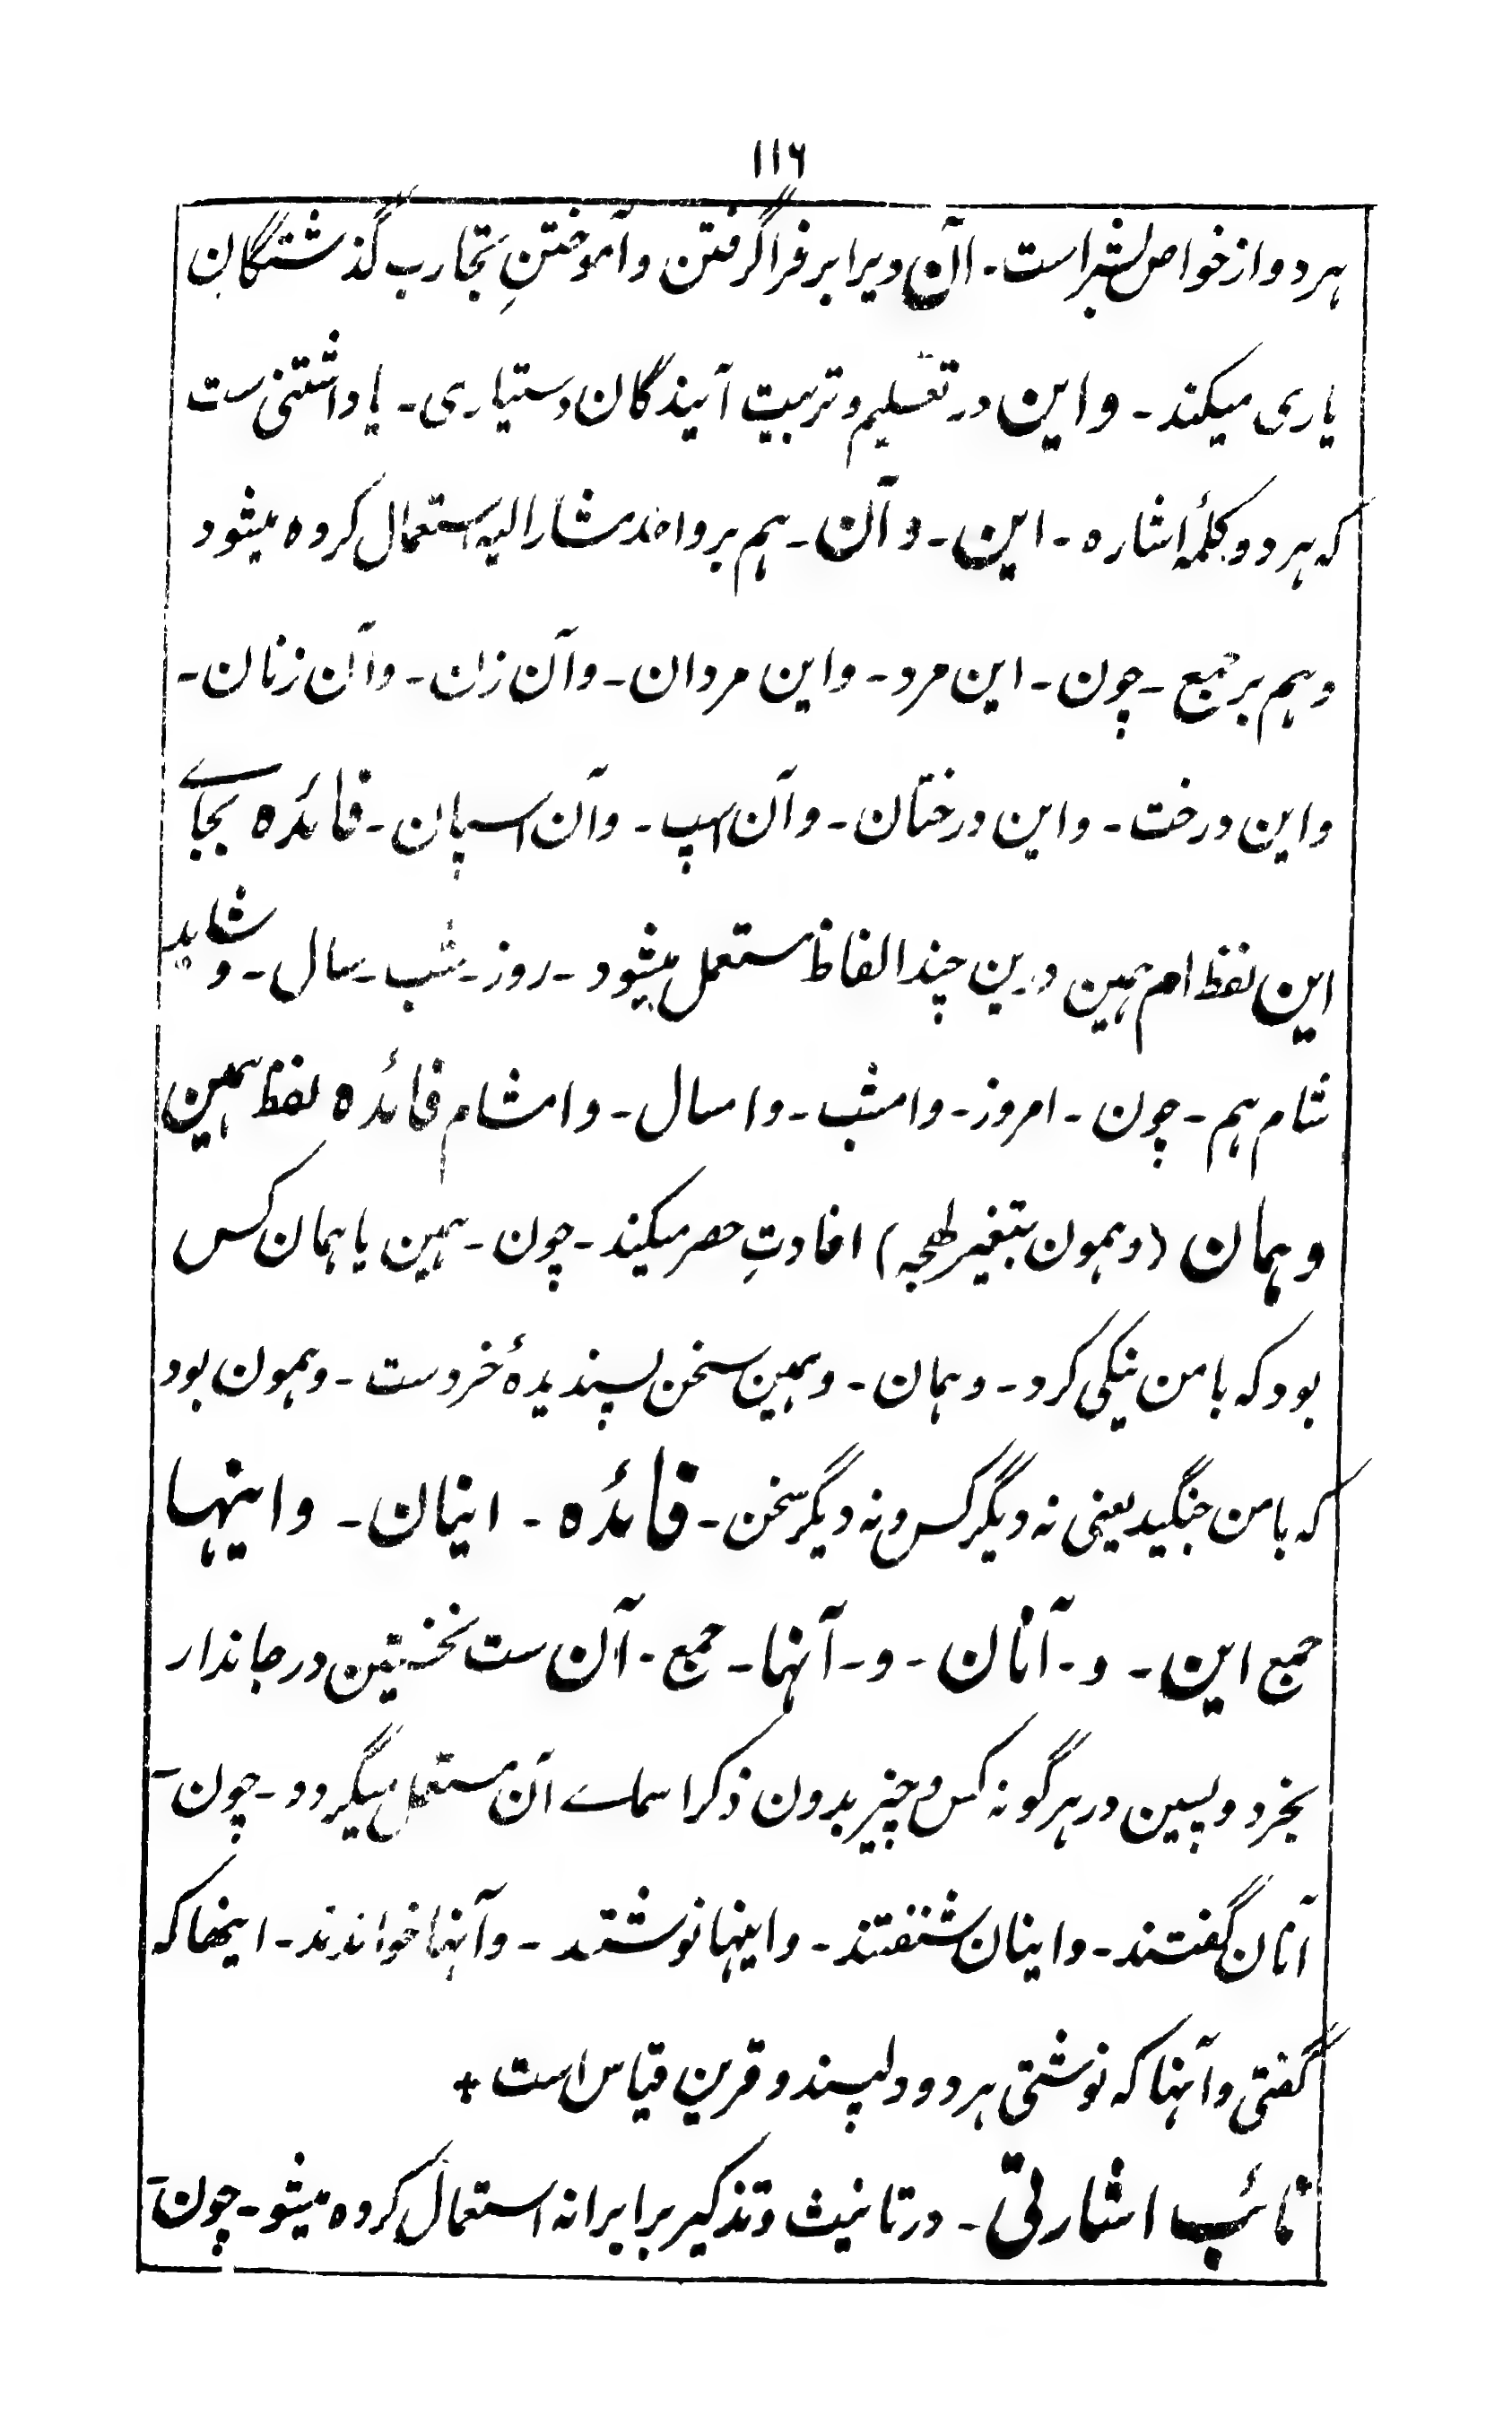 ١١٦
هردو از خواص بشر است۔ اآن ویرا بر فرا گرفتن و آموختنِ تجارب گذشتگان
یاری میکند۔ و این در تعلیم و تربیت آیندگان دستیاری۔ یاد داشتنی ست
که هر دو کلمۂ اشاره۔ این۔ و آن۔ هم بر واحد مشار الیه استعمال کرده میشود
و هم بر جمع۔ چون۔ این مرد۔ و این مردان۔ و آن زن۔ و آن زنان۔
و این درخت۔ و این درختان۔ و آن اسپ۔ و آن اسپان۔ فائده بجاے
این لفظ ام همین درین چند الفاظ مستعمل میشود۔ روز۔ شب۔ سال۔ و شاید
شام هم۔ چون۔ امروز۔ و امشب۔ و امسال۔ و امشام فائده لفظ همین
و همان (و همون بتغیر لهجه) افادتِ حصر میکند۔ چون۔ همین یا همان کس
بود که با من نیکی کرد۔ و همان۔ و همین سخن پسندیدۂ خرد ست۔ و همون بود
که با من جنگید یعنی نه دیگر کس و نه دیگر سخن۔ فائده۔ اینان۔ و اینها
جمع این۔ و۔ آنان۔ و۔ آنها۔ جمع۔ آن ست نخستین در جاندار
بخرد و پسین در هر گونه کس و چیز بدون ذکر اسماے آن مستعمل میگردد۔ چون۔
آنان گفتند۔ و اینان شنفتند۔ و اینها نوشتند۔ و آنها خواندند۔ اینها که
گفتی و آنها که نوشتی هر دو دلپسند و قرین قیاس است+
نائب اشارتی۔ در تانیث و تذکیر برابرانه استعمال کرده میشو۔ چون۔